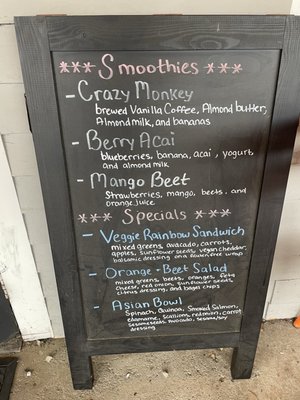 *** Smoothies ***
- Crazy Monkey
brewed Vanilla Coffee, Almond butter,
Almond milk, and bananas
- Berry Acai
blueberries, banana, acai, yogurt
and almond milk
- Mango Beet
Strawberries, mango, beets, and
orange juice
*** Specials ***
- Veggie Rainbow Sandwich
mixed greens, avocado, carrots,
apples, sunflower seeds, vegan cheddar,
balsamic dressing on a gluten free wrap
- Orange - Beet Salad
mixed greens, beets, oranges, feta
cheese, red onion, sunflower seeds,
citrus dressing, and bagel chips
- Asian Bowl
Spinach, Quinoa, Smoked Salmon,
edamame, scallions, redonion, carrot
sesame seeds, Avocado, sesame/soy
dressing